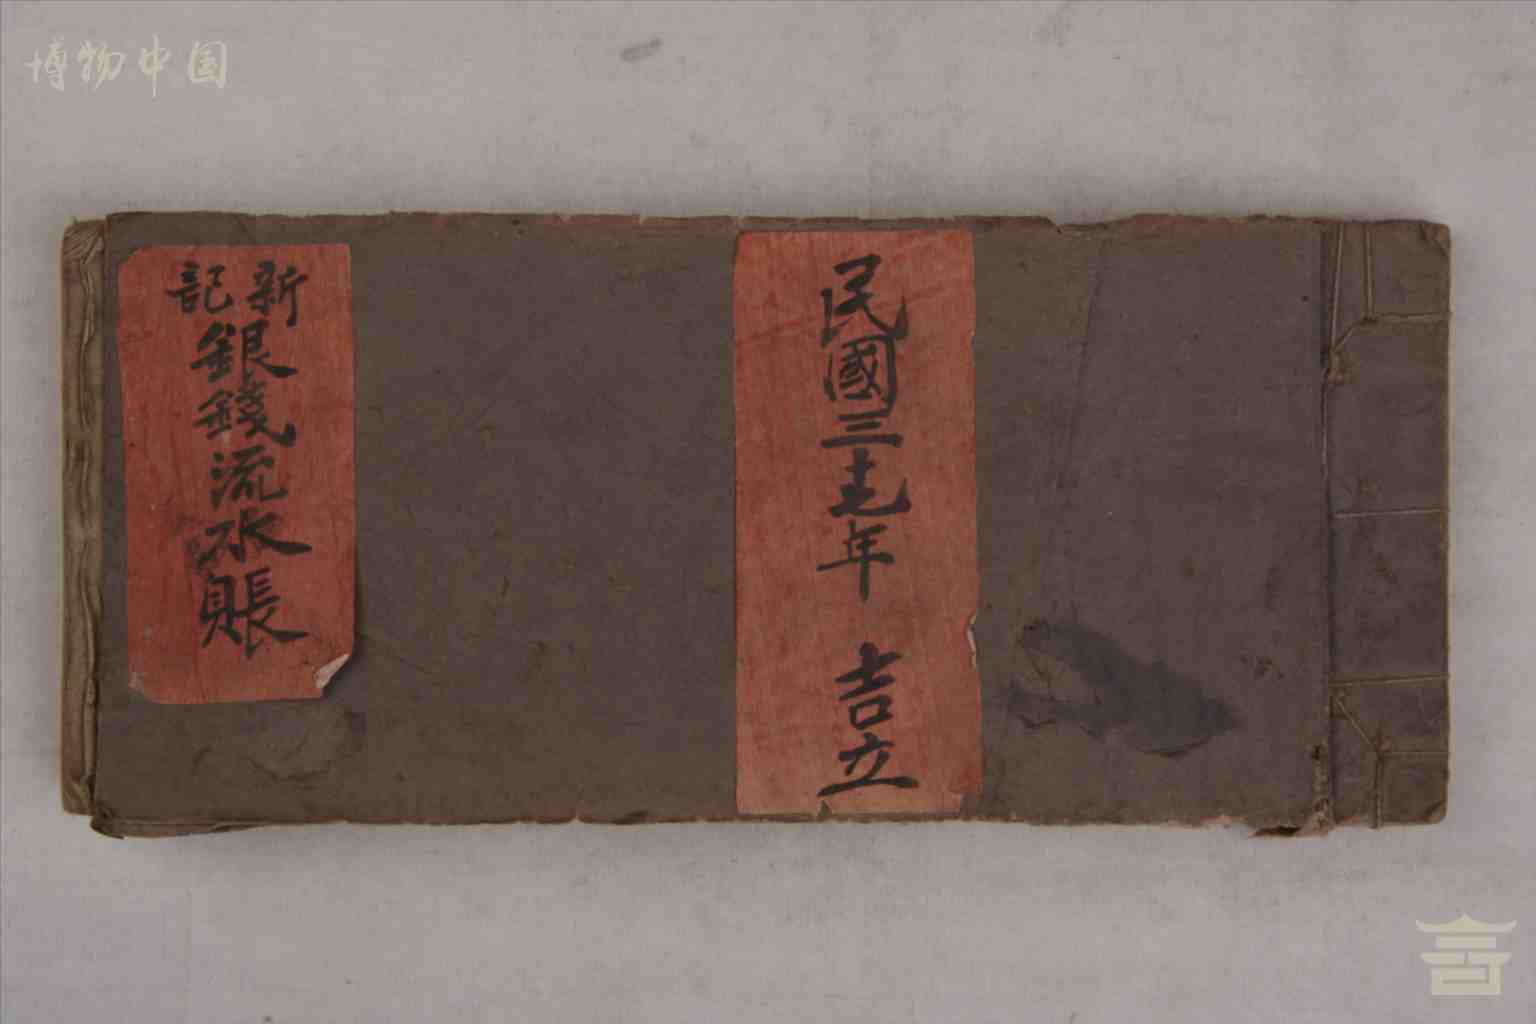 博物中国
民國三十七年 吉立
新記
銀錢流水賬